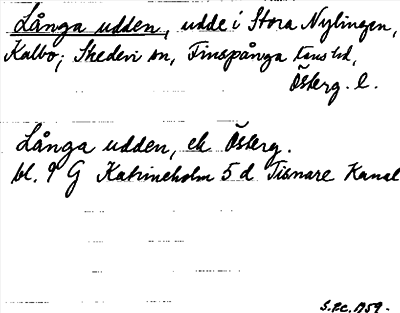 Långa udden, udde i Stora Nylingen,
Kalbo; Skedevi sn, Finspånga läns hd,
Österg. l.
Långa udden, ek Österg.
bl. 9 G Katrineholm 5 d Tisnare Kanal
S.Z.C. 1959.